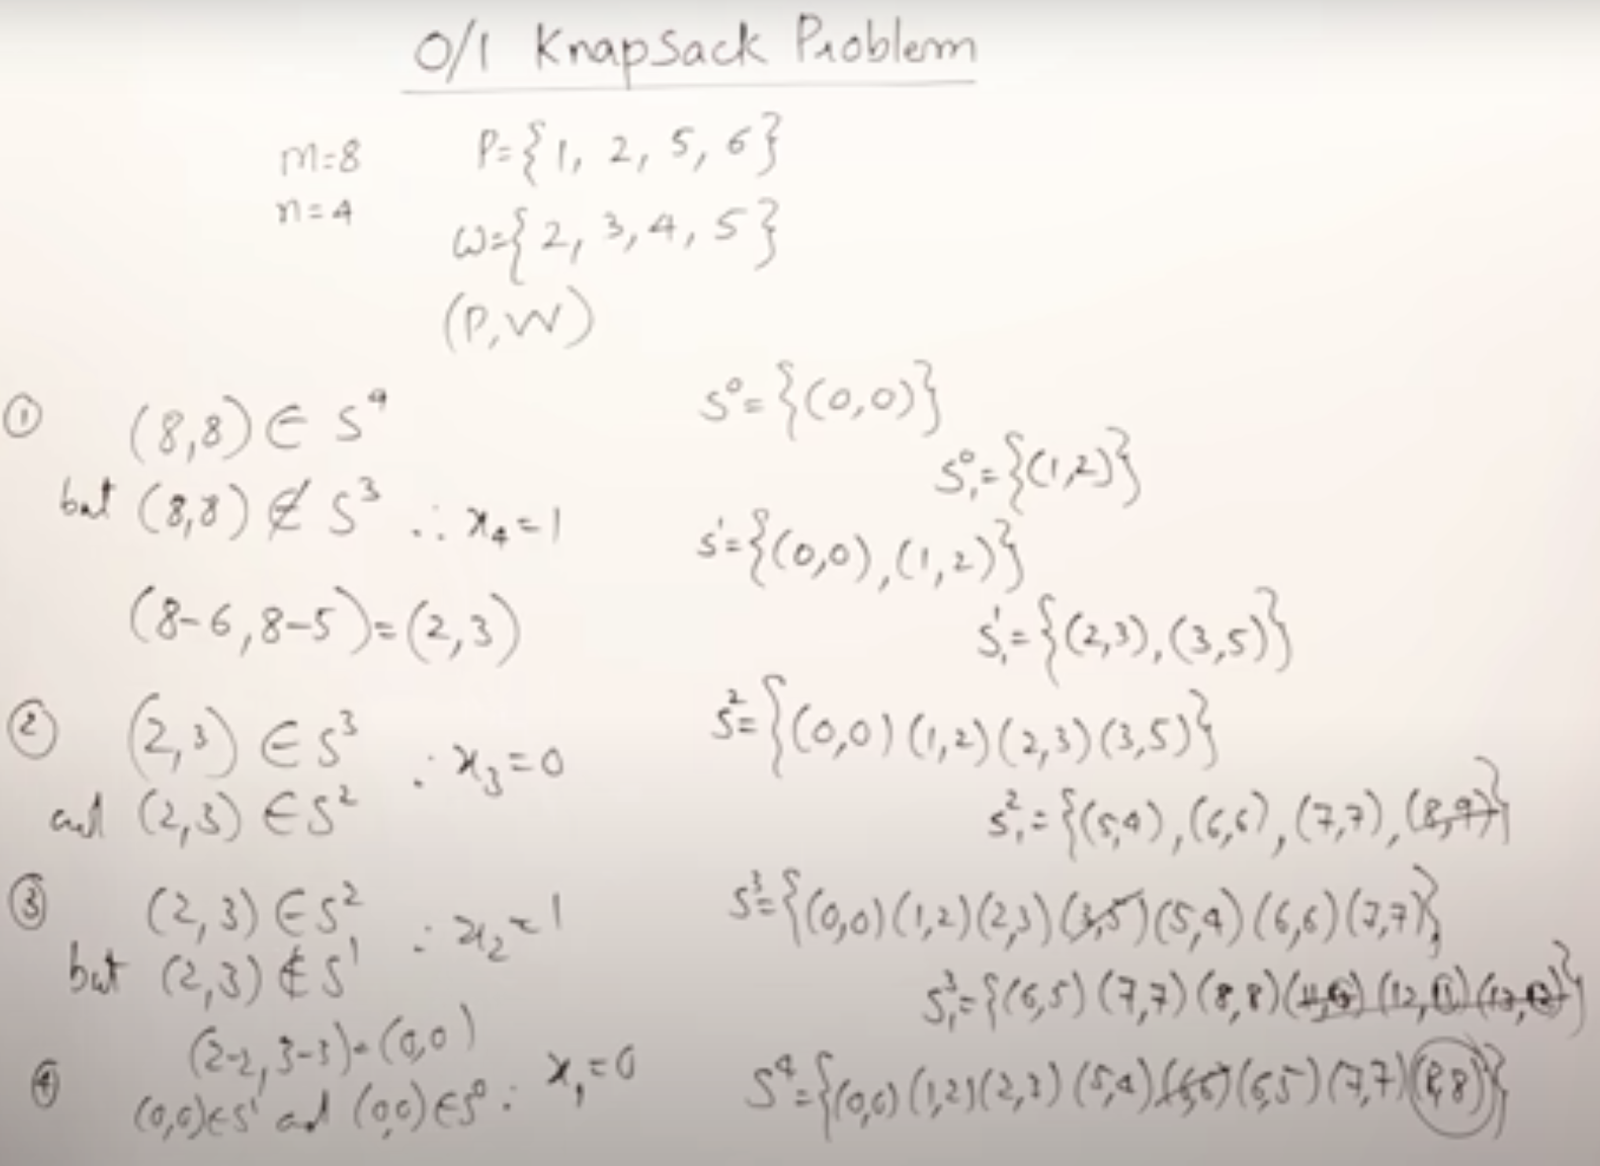 0/1 Knapsack Problem
m=8 P={1, 2, 5, 6}
n=4 w={2, 3, 4, 5}
(P,W)
① (8,8) ∈ S⁴
but (8,8) ∉ S³ ∴ x₄=1
(8-6, 8-5)=(2,3)
② (2,3) ∈ S³
and (2,3) ∈ S² ∴ x₃=0
③ (2,3) ∈ S²
but (2,3) ∉ S¹ ∴ x₂=1
(2-2, 3-3)=(0,0)
④ (0,0)∈S¹ and (0,0)∈S⁰ ∴ x₁=0
S⁰={(0,0)}
S⁰₁={(1,2)}
S¹={(0,0),(1,2)}
S¹₁={(2,3),(3,5)}
S²={(0,0)(1,2)(2,3)(3,5)}
S²₁={(5,4),(6,6),(7,7),(8,9)}
S³={(0,0)(1,2)(2,3)(3,5)(5,4)(6,6)(7,7)}
S³₁={(6,5)(7,7)(8,8)(11,9)(12,11)(13,12)}
S⁴={(0,0)(1,2)(2,3)(5,4)(6,6)(6,5)(7,7)(8,8)}